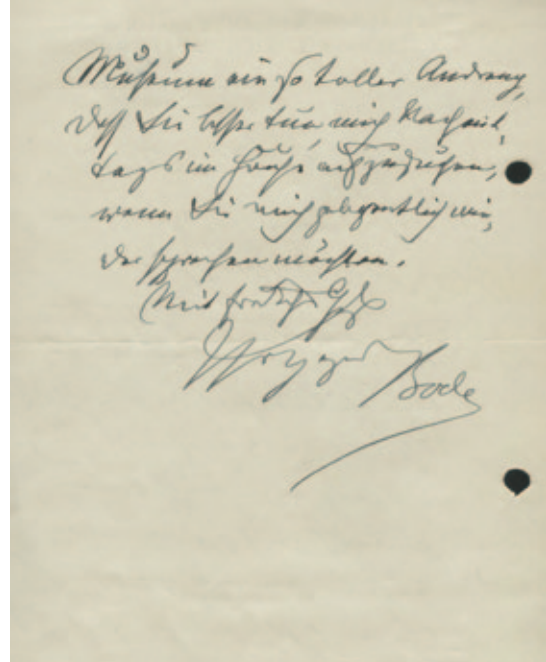 Museum ein so toller Andrang,
daß Sie besser tun, mich Nachmit-
tags im Hause aufzusuchen,
wenn Sie mich gelegentlich wie-
der sprechen möchten.
Mit
Bode